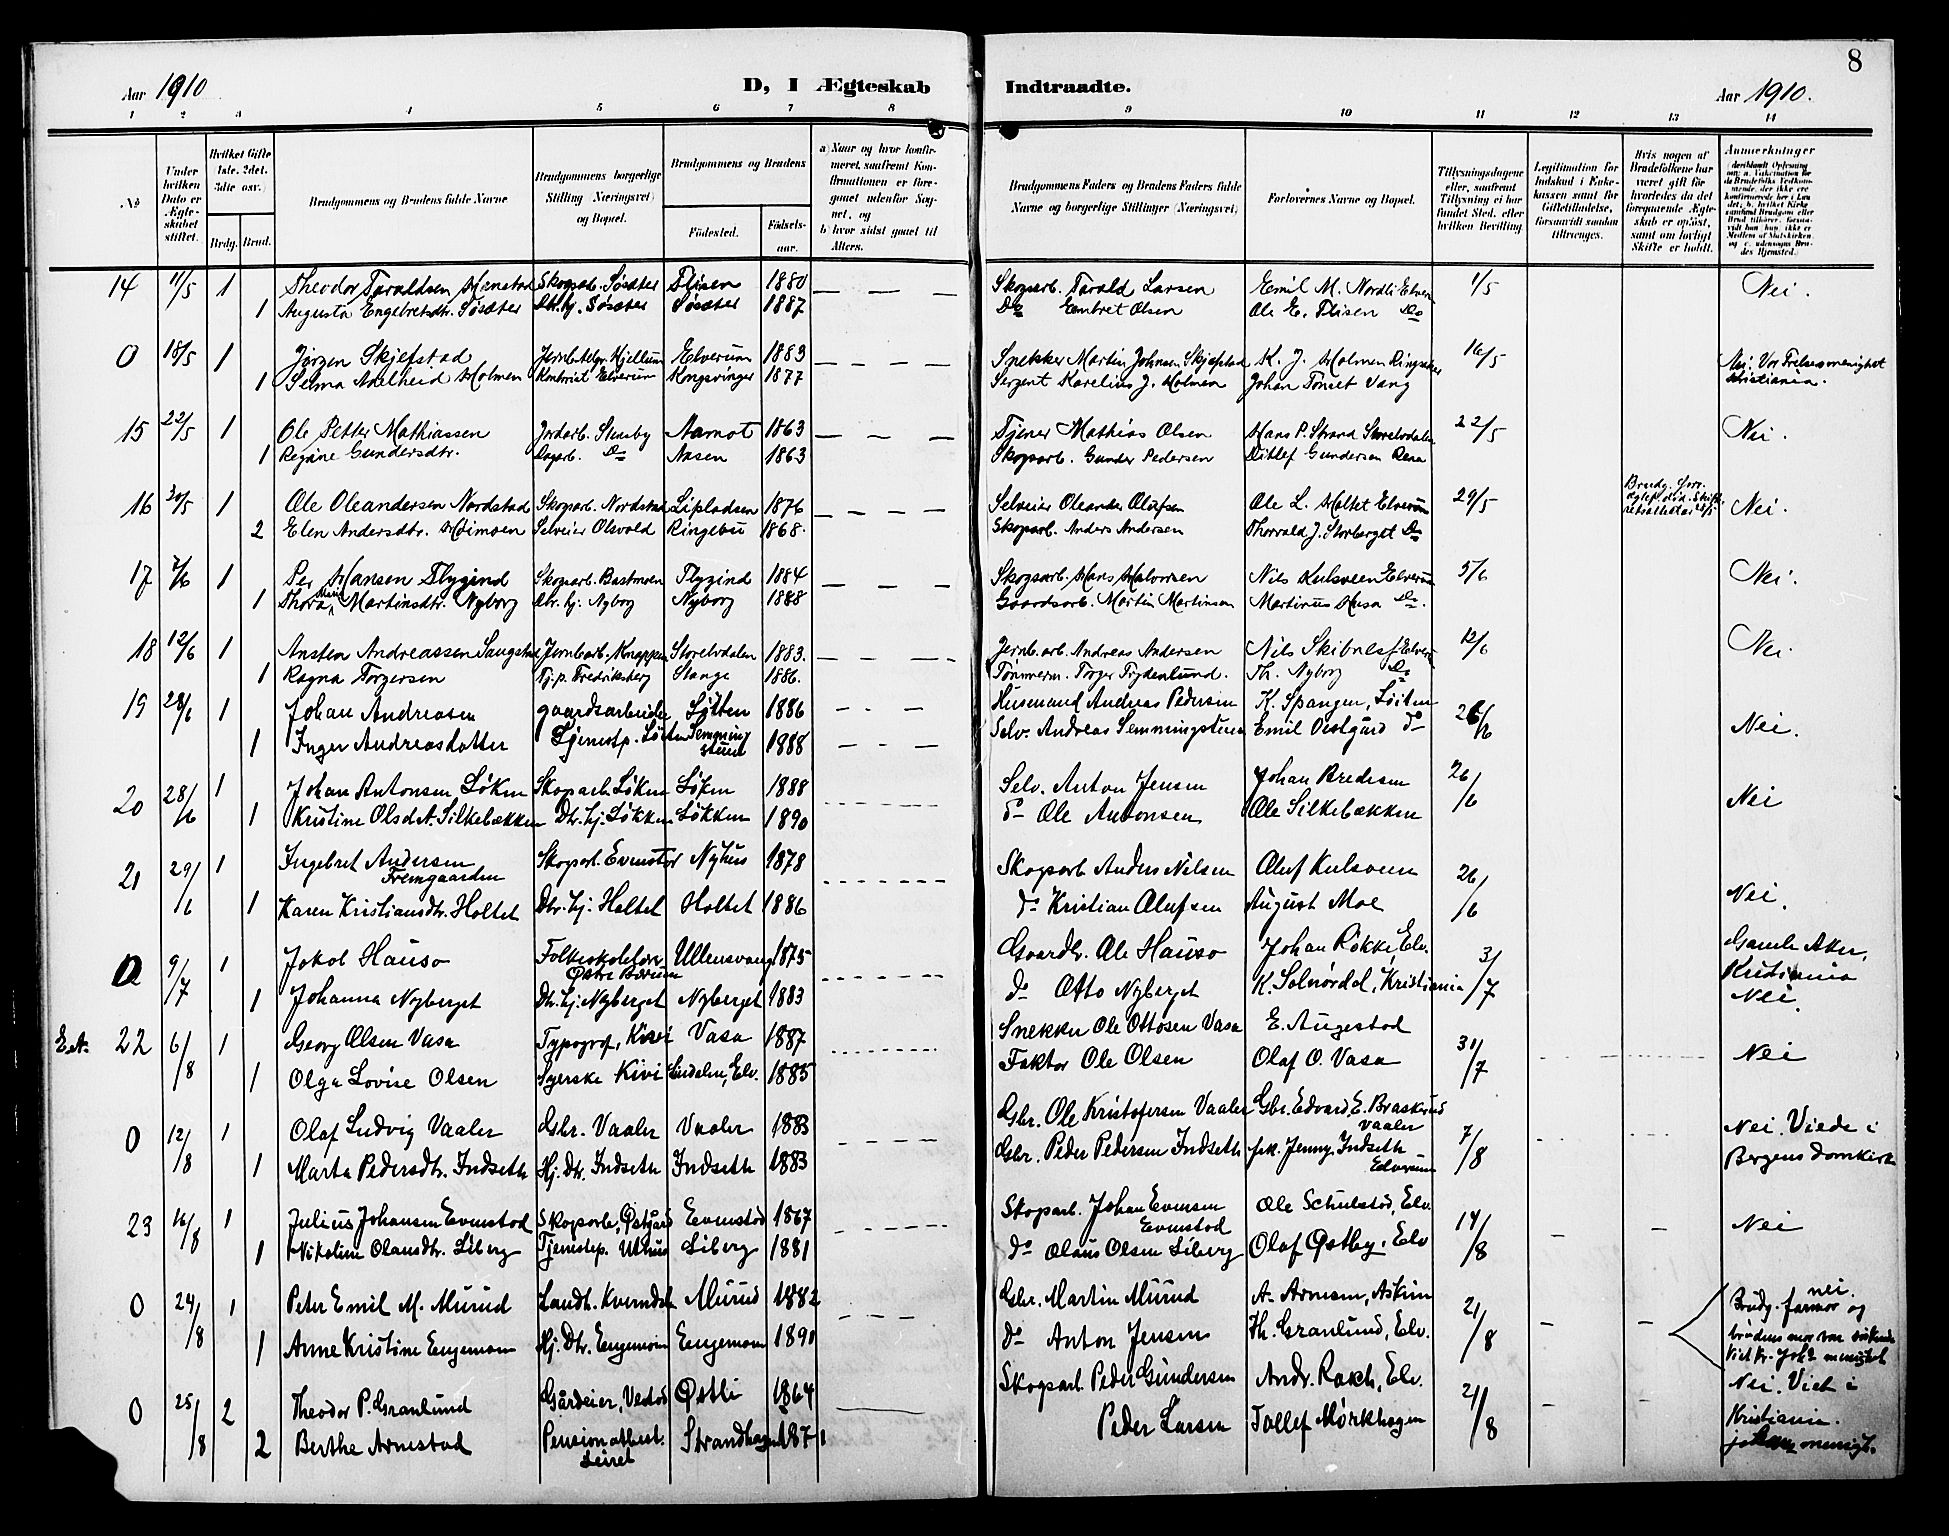 8
Aar 1910
D, I Ægteskab
Indtraadte.
Aar 1910.
1 2 3 4 5 6 7 8 9 10 11 12 13 14
No
Under hvilken Dato er Ægteskabet stiftet.
Hvilket Gifte 1ste, 2det, 3die osv.)
Brdg. Brud.
Brudgommens og Brudens fulde Navne
Brudgommens borgerlige Stilling (Næringsvei) og Bopæl.
Brudgommens og Brudens
Fødested. Fødselsaar.
a) Naar og hvor konfirmeret, saafremt Konfirmationen er foregaaet udenfor Sognet, og
b) hvor sidst gaaet til Alters.
Brudgommens Faders og Brudens Faders fulde Navne og borgerlige Stillinger (Næringsvei)
Forlovernes Navne og Bopæl.
Tillysningsdagene eller, saafremt Tillysning ei har fundet Sted, efter hvilken Bevilling.
Legitimation for Indskud i Enkekassen samt for Giftetilladelse, forsaavidt saadan tiltrænges.
Hvis nogen af Brudefolkene har været gift før hvorledes da det foregaaende Ægteskab er opløst, samt om lovligt Skifte er holdt.
Anmerkninger
14 11/5 1 Theodor Taraldsen Hanstad Skogsarb. Sösæter Flisen 1880 — — — Skogsarb. Tarald Larsen Emil M. Nordli Elver 1/5 Nei.
1 Augusta Engebretsdtr. Sösæter Dtr. hj. Sösæter Sösæter 1887 Do Embret Olsen Ole E. Flisen Do
0 18/5 1 Jørgen Skjefstad Hjellum Elverum 1883 — — — Snekker Martin Johnsen Skjefstad K. J. Holmen Ringsaker 16/5 Nei. Vor Frelsesmenighet
1 Selma Adelheid Holmen Kontorist Elverum Kongsvinger 1877 Sergent Karelius J. Holmen Johan Tomet Vang Christiania.
15 22/5 1 Ole Petter Mathiassen Jordarb. Stensby Aamot 1863 — — — Tjener Mathias Olsen Hans P. Strand Storelvdalen 22/5 Nei.
1 Regine Gundersdtr. Do Aasen 1863 Skogsarb. Gunder Pedersen Ditlef Gundersen Rena
16 30/5 1 Ole Oleandersen Nordstad Skogsarb. Nordstad Lipladsen 1876 — — — Selveier Oleander Olufsen Ole L. Holtet Elverum 29/5 Nei.
2 Elen Andersdtr. Heimoen Selveier Olsvold Ringebu 1868. Skogsarb. Anders Andersen Thorvald J. Storberget Do
17 7/6 1 Per Hansen Flygind Skogsarb. Bastmoen Flygind 1884 — — — Skogsarb. Hans Halvorsen Nils Kulsveen Elverum 5/6 Nei.
1 Thora Marie Martinsdtr. Nyborg Dtr. hj. Nyborg Nyborg 1888 Gaardsarb. Martin Martinsen Martinus Husa Do.
18 12/6 1 Ansten Andreassen Saugstad Jernbarb. Knappen Storelvdalen 1883. — — — Jernb. arb. Andreas Andersen Nils Skibnes Elver 12/6 Nei.
1 Ragna Torgersen Tj. p. Fredriksberg Stange 1886. Tømmerm. Torger Frydenlund. Th. Nyborg Do
19 28/6 1 Johan Andreasen gaardsarbeider Løiten 1886 - . - Husmand Andreas Pedersen K. Spangen, Løiten 26/6 Nei.
1 Inger Andreasdatter Tjenestp. Løiten Semmingstuen 1888 - . - Selv. Andreas Semmingstuen Emil Vestgård do
20 28/6 1 Johan Antonsen Løken Skogsarb. Løken Løken 1888 Selv. Anton Jensen Johan Bredesen 26/6 Nei
1 Kristine Olsdt. Silkebækken Dtr. hj. Løkken Løkken 1890 do Ole Antonsen Ole Silkebækken
21 29/6 1 Ingebret Andersen Fremgaarden Skogsarb. Evenstad Nyhus 1878 Skogsarb Anders Nilsen Oluf Kulsveen 26/6 Nei.
1 Karen Kristiansdtr. Holtet Dtr. hj. Holtet Holtet 1886 do Kristian Olufsen August Moe
0 9/7 1 Jakob Hauso Folkeskolelærer Østre Bærum Ullensvang 1875 Gaardbr. Ole Hauso Johan Røkke, Elv. 3/7 Gamle Aker, Kristiania
1 Johanna Nyberget Dtr. hj. Nyberget Nyberget 1883 do Otto Nyberget K. Solnørdal, Kristiania Nei.
22 6/8 1 Georg Olsen Vasa Typograf, Kivi Vasa 1887 Snekker Ole Ottosen Vasa E. Augestad 31/7 Nei
1 Olga Lovise Olsen Syerske Kivi Lisdalen, Elv. 1885 Faktor Ole Olsen Olaf O. Vasa
0 12/8 1 Olaf Ludvig Vaaler Gbr. Vaaler Vaaler 1883 Gbr. Ole Kristofersen Vaaler Gbr. Edvard E. Braskerud Vaaler 7/8 Nei. Viede i
1 Marta Pedersdtr. Indseth Hj. Dtr. Indseth Indseth 1883 Gbr. Peder Pedersen Indseth frk. Jenny Indseth Elverum Bergens Domkirke
23 16/8 1 Julius Johansen Evenstad Skogsarb. Østgård Evenstad 1867 Skogsarb. Johan Evensen Evenstad Ole Schulstad, Elv. 14/8 Nei
1 Nikoline Olausdtr. Liberg Tjenestep. Uthus Liberg 1881 do Olaus Olsen Liberg Olaf Østby, Elv
0 24/8 1 Peter Emil M. Murud Landh. Kverndal Murud 1882 Gbr. Martin Murud A. Arnesen, Askim 21/8 nei. Brudg. farmor og
1 Anne Kristine Engemoen Hj. Dtr. Engemoen Engemoen 1890 do Anton Jensen Th. Granlund, Elv. brudens mor var søskende
0 25/8 2 Theodor P. Granlund Gårdeier, Vestad Østli 1864 Skogsarb Peder Gundersen Andr. Rokch, Elv. 21/8 Nei. Viet i
2 Berthe Arnestad Pensionatbest. Leiret Strandhagen 1871 Peder Larsen Tollef Mørkhagen Kristiania.